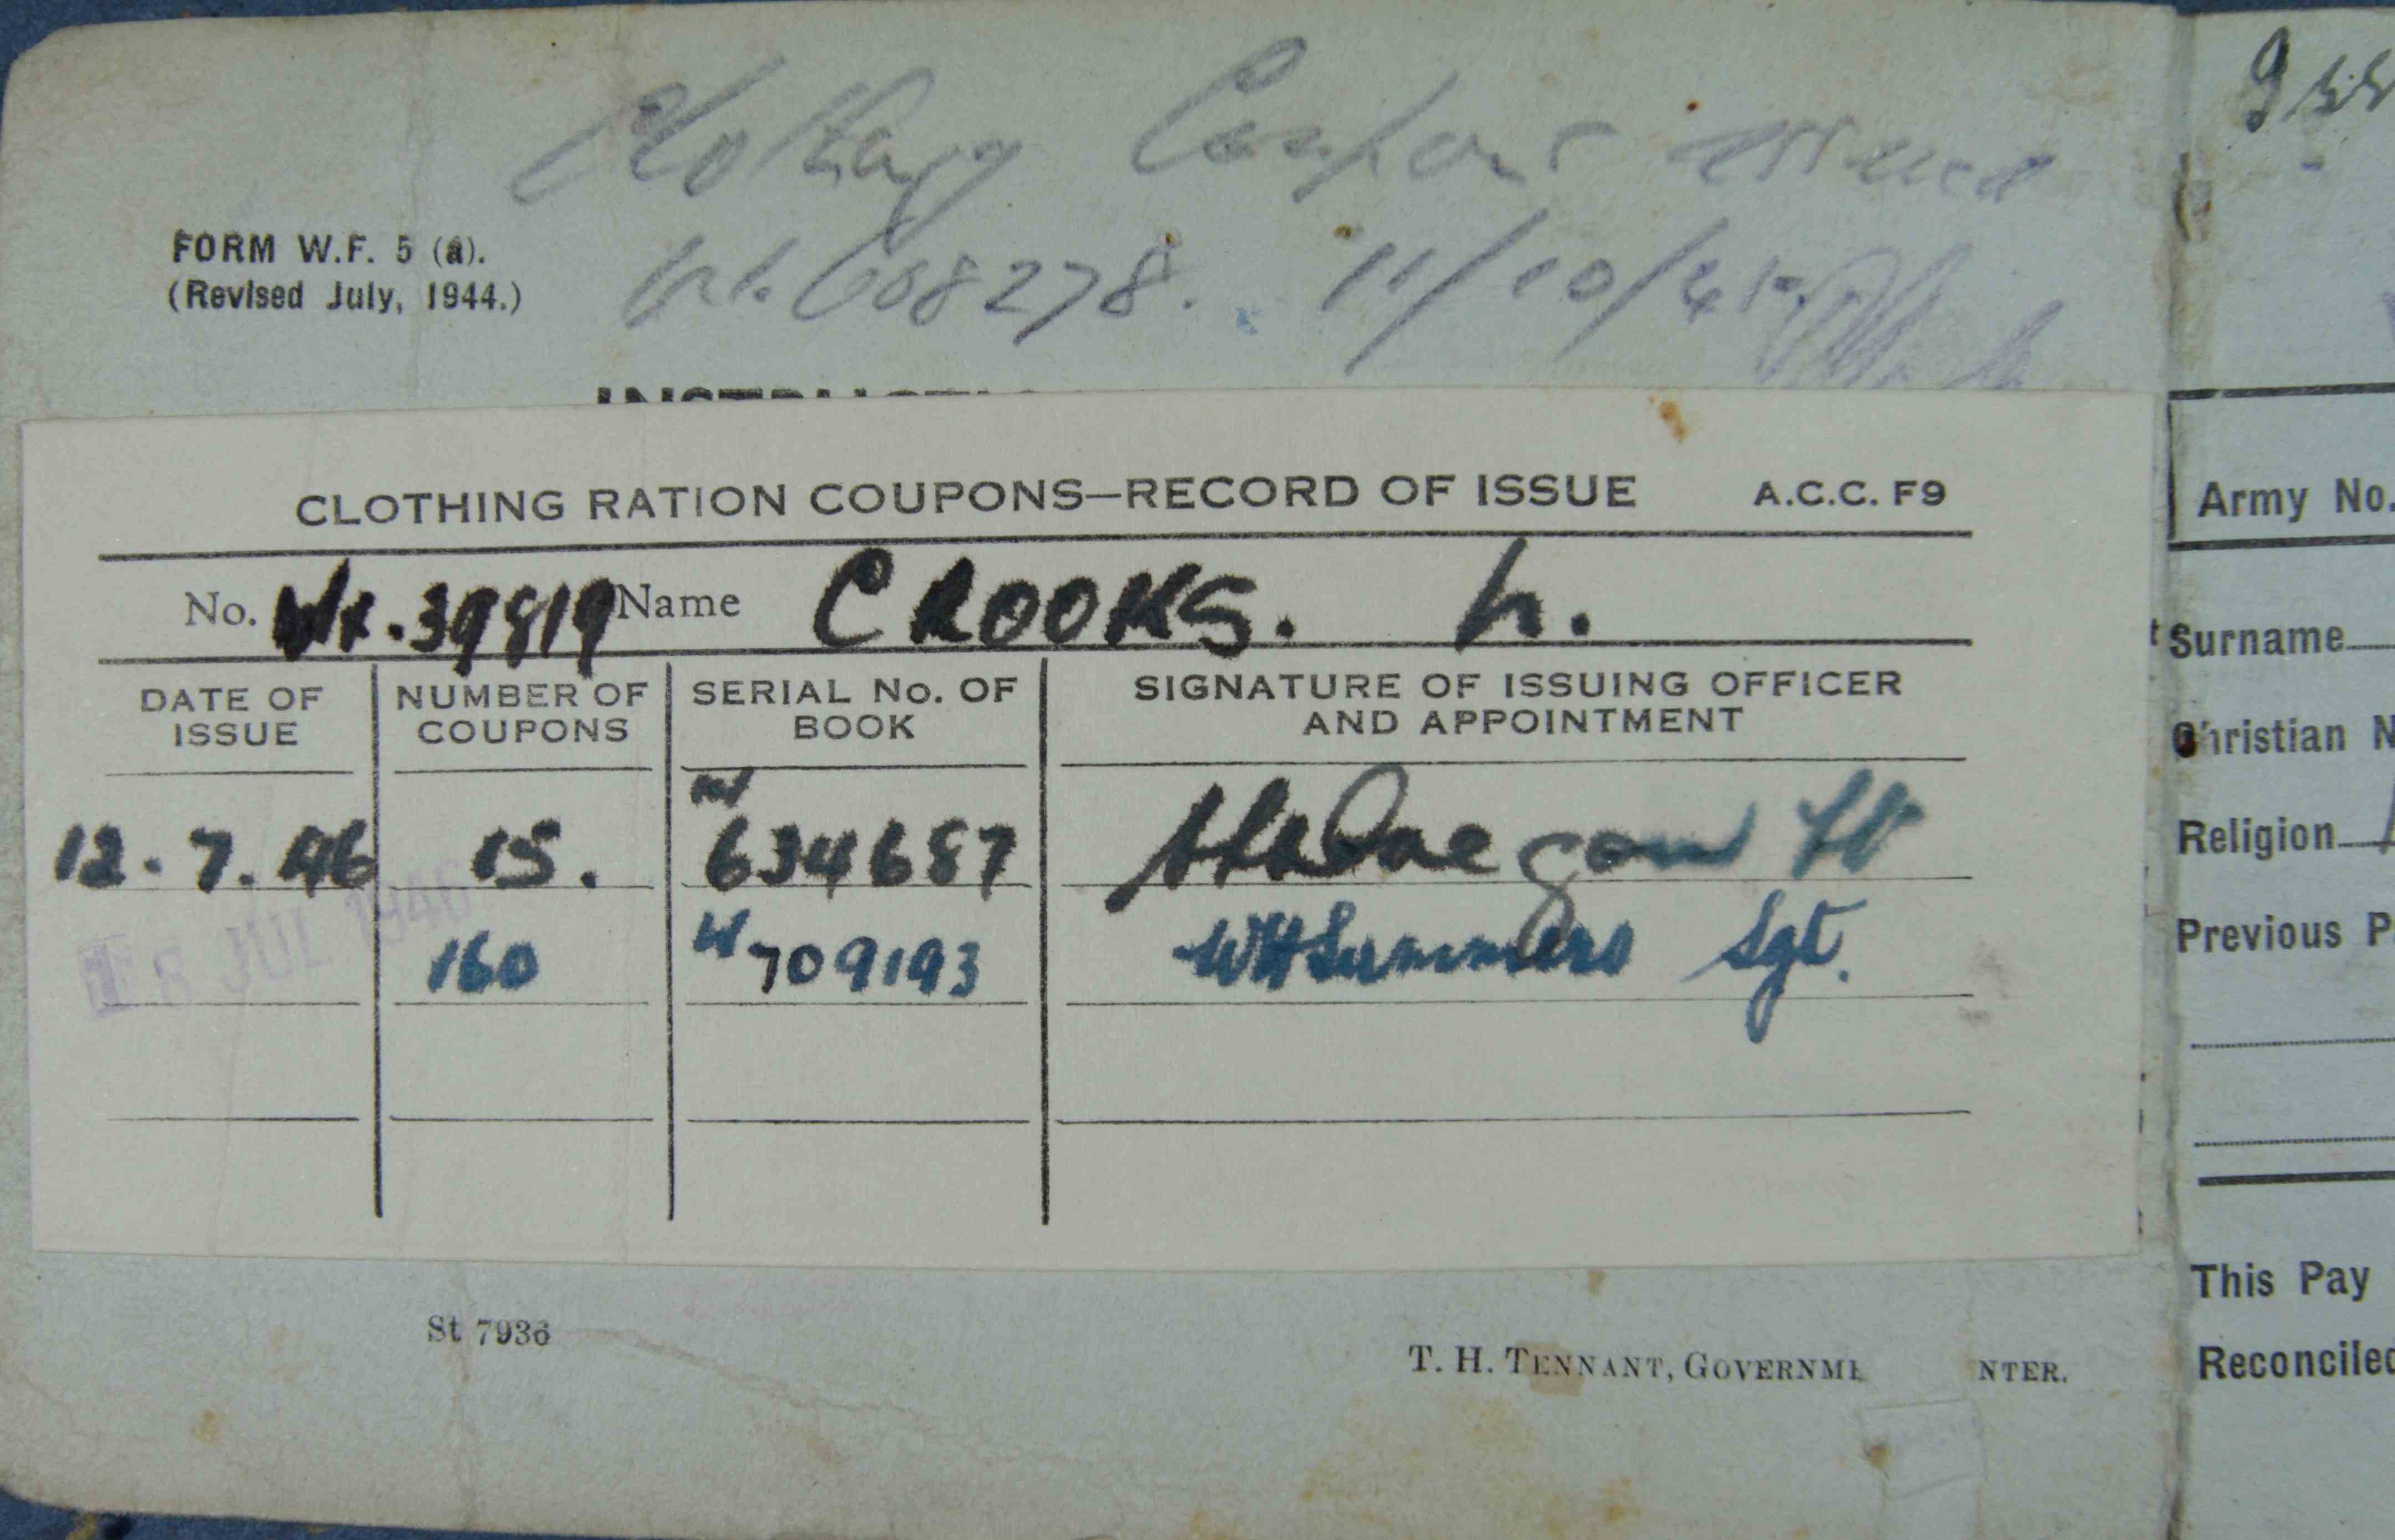 Clothing Coupons issued
FORM W.F. 5 (a).
(Revised July, 1944.)
608278. 11/10/45
CLOTHING RATION COUPONS—RECORD OF ISSUE A.C.C. F9
No. WX.39819 Name CROOKS. L.
DATE OF ISSUE NUMBER OF COUPONS SERIAL No. OF BOOK SIGNATURE OF ISSUING OFFICER AND APPOINTMENT
12.7.46 15. W 634687 Lt
JUL 1946 160 W 709193 WHSummers Sgt.
St 7936
T. H. TENNANT, GOVERNME NTER.
Army No.
Surname
Christian N
Religion
Previous P
This Pay
Reconciled